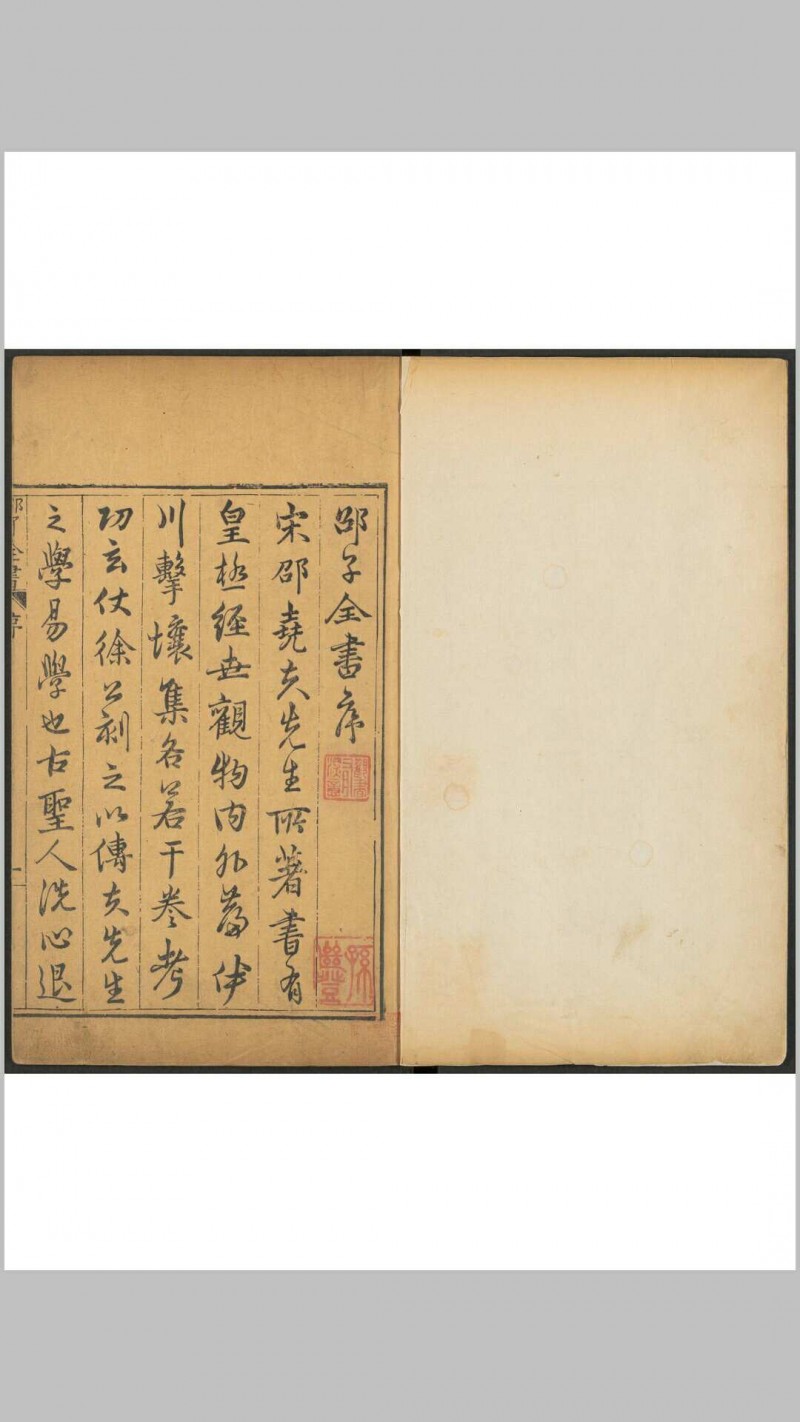 邵子全書序
宋邵堯夫先生所著書有
皇極經世觀物內外篇伊
川擊壤集各若干卷考
功玄仗徐公刻之以傳夫先生
之學易學也古聖人洗心退
邵子全書 序 一